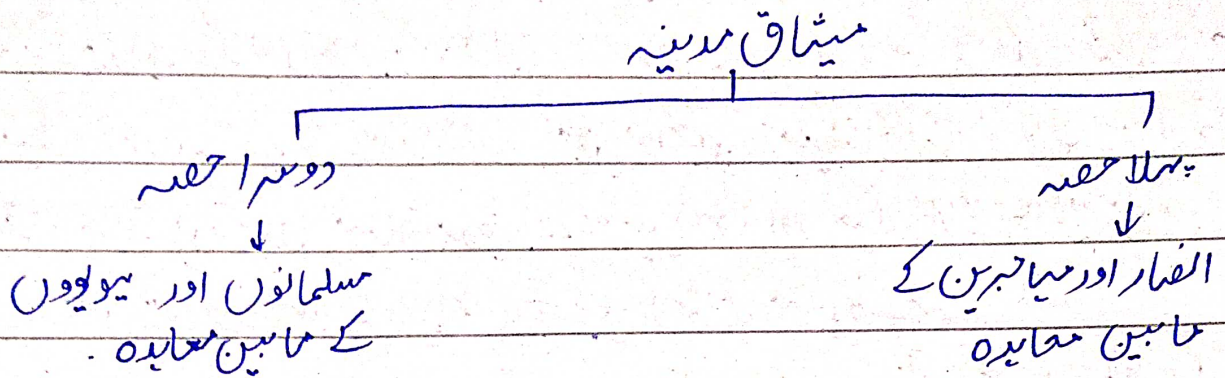 میثاق مدینہ
پہلا حصہ
دوسرا حصہ
↓
↓
انصار اور مہاجرین کے
مابین معاہدہ
مسلمانوں اور یہودیوں
کے مابین معاہدہ.